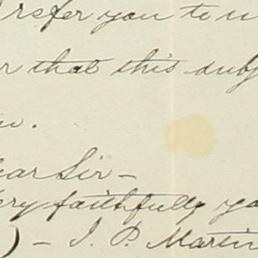 refer you to
that this
ear Sir -
ery faithfully yo
) - J. P. Martin